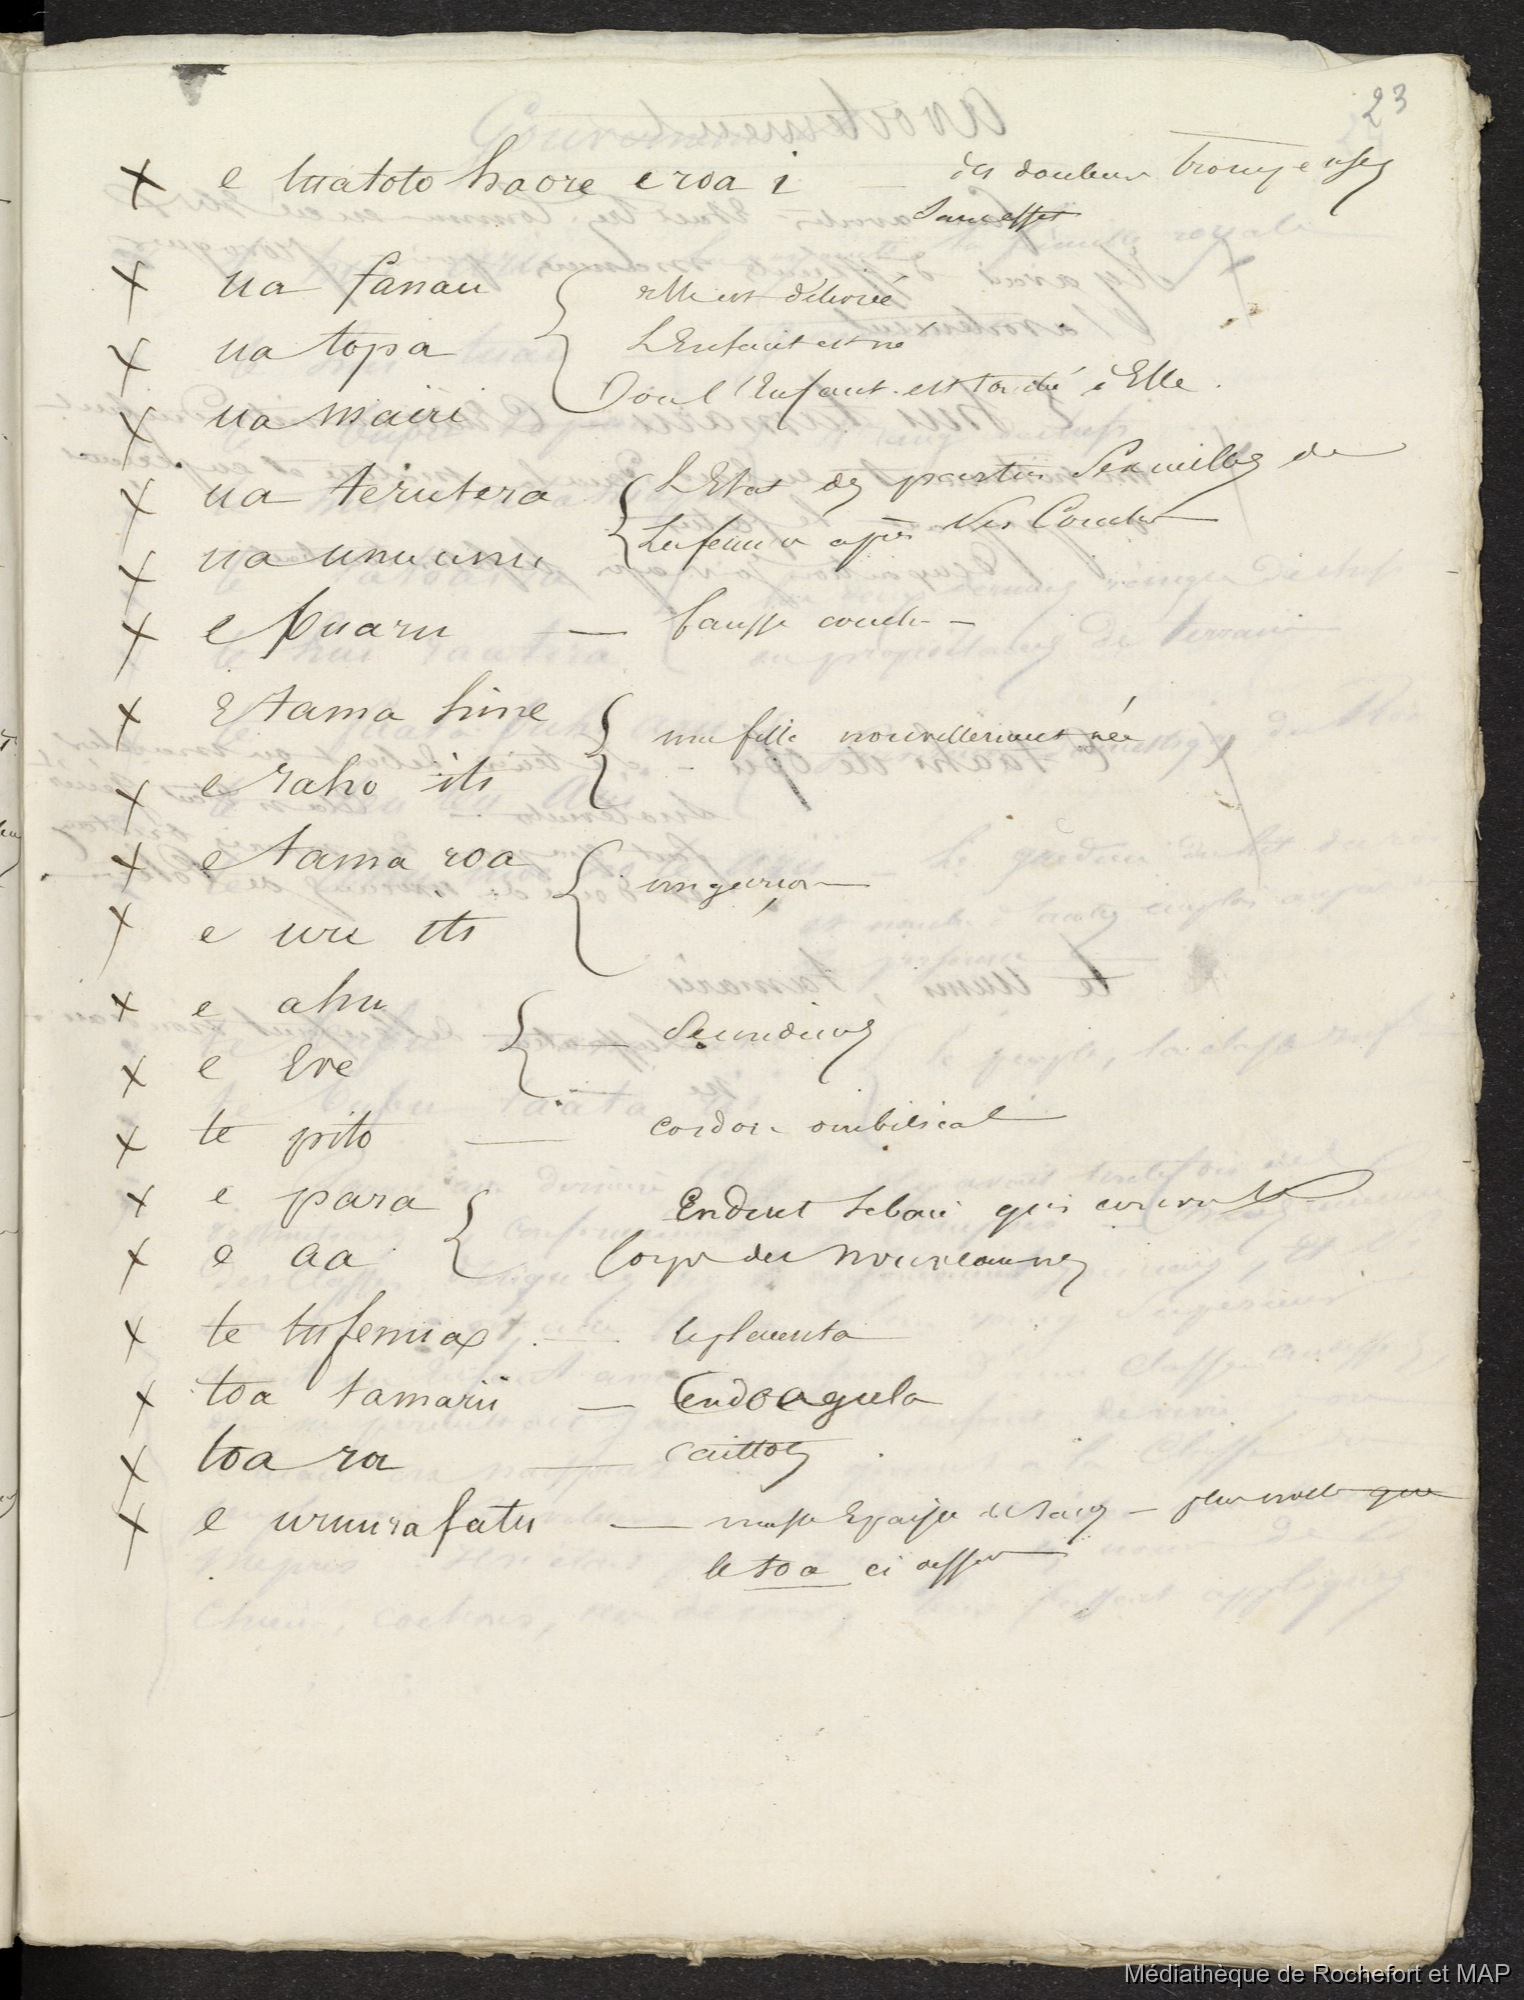 23
x e tuatoto haore e roa i — des douleurs trompeuses
sans effet
x ua fanau { elle est délivrée
x ua topa L'Enfant est né
x ua mairi Ou l'Enfant est tombé d'Elle.
x ua terutera { L'Etat des parties sexuelles de
x ua unuunu La femme après Ses Couches
x e puaru — fausse couche —
x E tama hine { une fille nouvellement née
x e raho iti
x e tama roa { un garçon
x e ure iti
x e ahu { — Secundines
x e Eve
x te pito — cordon ombilical
x e para { Enduit sebacé qui couvre le
x e aa Corps des nouveaux nés
x te tufenua — le placenta
x toa tamarii —
x toa ra — caillots
x e uruurafatu — masse Epaisse de sang — plus molle que
le toa ci dessus
Médiathèque de Rochefort et MAP